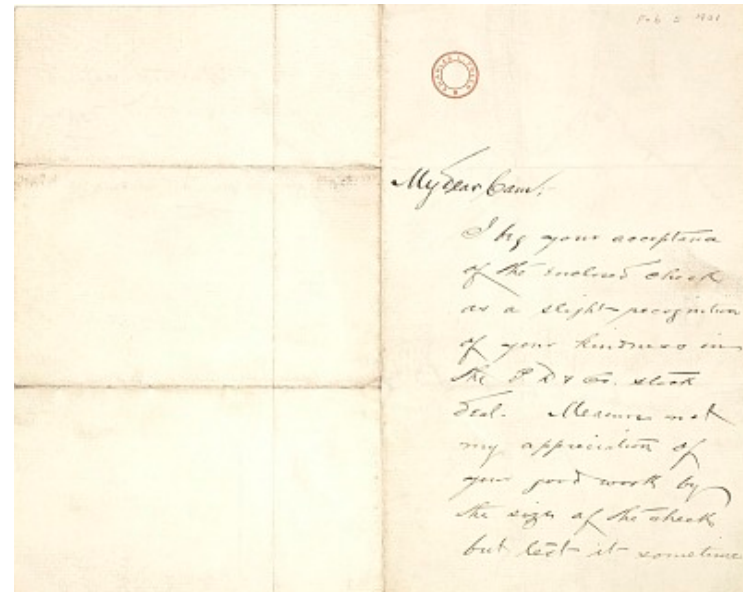 Feb 5 1901
CHARLES L. FREER
My dear Cam:
I beg your acceptance
of the enclosed check
as a slight recognition
of your kindness in
the & Co. stock
deal. Measure not
my appreciation of
your good work by
the size of the check
but test it sometime